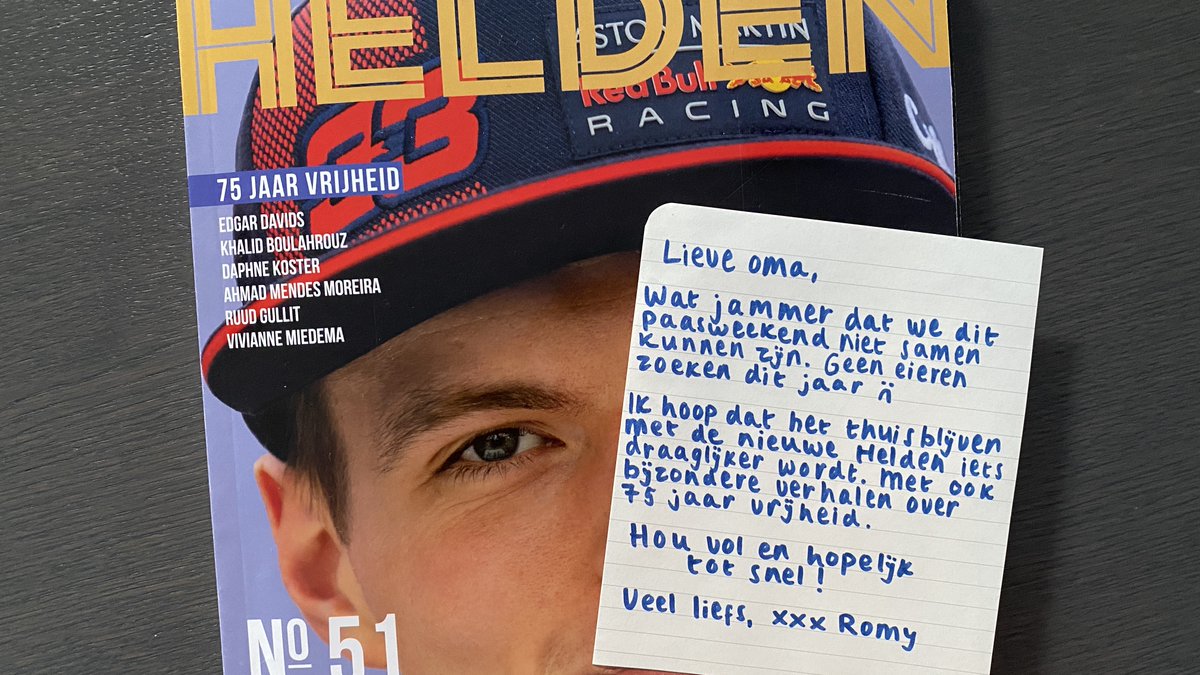 HELDEN
ASTON MARTIN
Red Bull
RACING
33
75 JAAR VRIJHEID
EDGAR DAVIDS
KHALID BOULAHROUZ
DAPHNE KOSTER
AHMAD MENDES MOREIRA
RUUD GULLIT
VIVIANNE MIEDEMA
Nº 51
Lieve oma,
Wat jammer dat we dit
paasweekend niet samen
kunnen zijn. Geen eieren
zoeken dit jaar
Ik hoop dat het thuisblijven
met de nieuwe Helden iets
draaglijker wordt. Met ook
bijzondere verhalen over
75 jaar vrijheid.
Hou vol en hopelijk
tot snel!
Veel liefs, xxx Romy